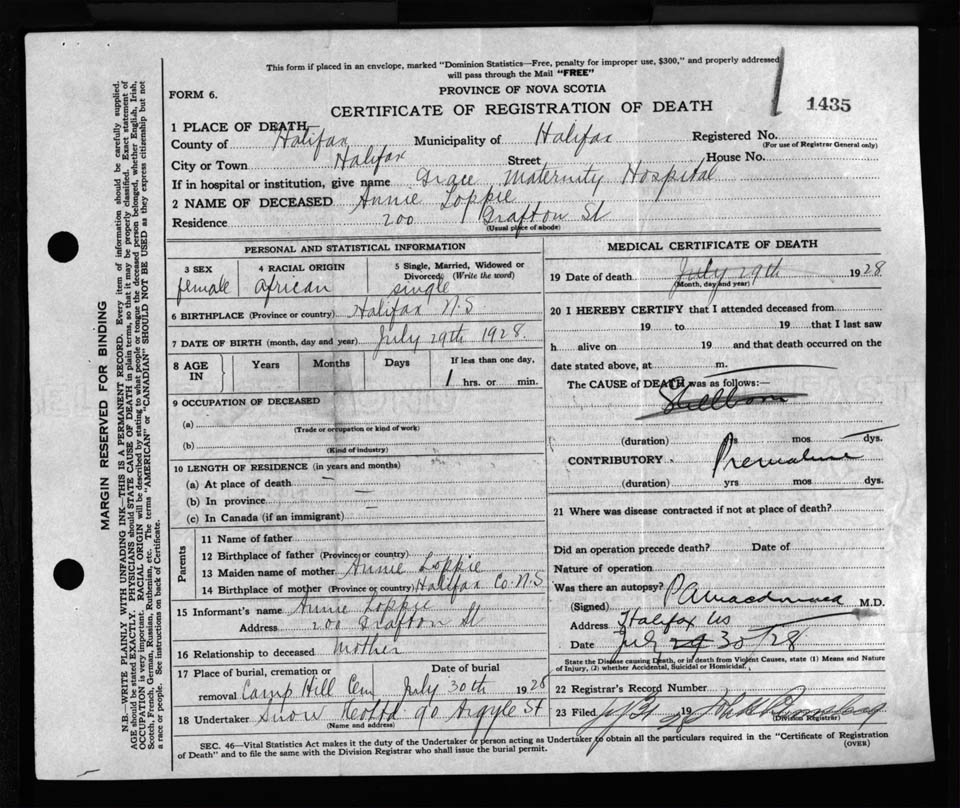 This form if placed in an envelope, marked "Dominion Statistics—Free, penalty for improper use, $300," and properly addressed
will pass through the Mail "FREE"
PROVINCE OF NOVA SCOTIA
FORM 6.
CERTIFICATE OF REGISTRATION OF DEATH
1435
1 PLACE OF DEATH
County of Halifax Municipality of Halifax Registered No.
(For use of Registrar General only)
City or Town Halifax Street House No.
If in hospital or institution, give name Grace Maternity Hospital
2 NAME OF DECEASED Annie Loppie
Residence 200 Grafton St
(Usual place of abode)
PERSONAL AND STATISTICAL INFORMATION
3 SEX 4 RACIAL ORIGIN 5 Single, Married, Widowed or Divorced (Write the word)
female African single
6 BIRTHPLACE (Province or country) Halifax N.S
7 DATE OF BIRTH (month, day and year) July 29th 1928
8 AGE IN Years Months Days If less than one day,
1 hrs. or min.
9 OCCUPATION OF DECEASED
(a)
(Trade or occupation or kind of work)
(b)
(Kind of industry)
10 LENGTH OF RESIDENCE (in years and months)
(a) At place of death —
(b) In province —
(c) In Canada (if an immigrant)
Parents
11 Name of father
12 Birthplace of father (Province or country)
13 Maiden name of mother Annie Loppie
14 Birthplace of mother (Province or country) Halifax Co. N.S
15 Informant's name Annie Loppie
Address 200 Grafton St
16 Relationship to deceased Mother
17 Place of burial, cremation or removal Date of burial
Camp Hill Cem July 30th 1928
18 Undertaker Snow 90 Argyle St
(Name and address)
MEDICAL CERTIFICATE OF DEATH
19 Date of death July 29th 1928
(Month, day and year)
20 I HEREBY CERTIFY that I attended deceased from
19 to 19 that I last saw
h alive on 19 and that death occurred on the
date stated above, at m.
The CAUSE of DEATH was as follows:—
Stillborn
(duration) yrs mos dys.
CONTRIBUTORY Premature
(duration) yrs mos dys.
21 Where was disease contracted if not at place of death?
Did an operation precede death? Date of
Nature of operation
Was there an autopsy?
(Signed) M.D.
Address Halifax NS
Date July 30/28
State the Disease causing Death, or in death from Violent Causes, state (1) Means and Nature
of Injury, (2) whether Accidental, Suicidal or Homicidal.
22 Registrar's Record Number
23 Filed 19
(Division Registrar)
SEC. 46—Vital Statistics Act makes it the duty of the Undertaker or person acting as Undertaker to obtain all the particulars required in the "Certificate of Registration
of Death" and to file the same with the Division Registrar who shall issue the burial permit.
(OVER)
MARGIN RESERVED FOR BINDING
N.B.—WRITE PLAINLY WITH UNFADING INK—THIS IS A PERMANENT RECORD. Every item of information should be carefully supplied.
AGE should be stated EXACTLY. PHYSICIANS should STATE CAUSE OF DEATH in plain terms, so that it may be properly classified. Exact statement of
OCCUPATION is very important. RACIAL ORIGIN will be described by stating to what people or tongue the deceased person belonged, whether English, Irish,
Scotch, French, German, Russian, Ruthenian, etc. The terms "AMERICAN" or "CANADIAN" SHOULD NOT BE USED as they express citizenship but not
a race or people. See instructions on back of Certificate.